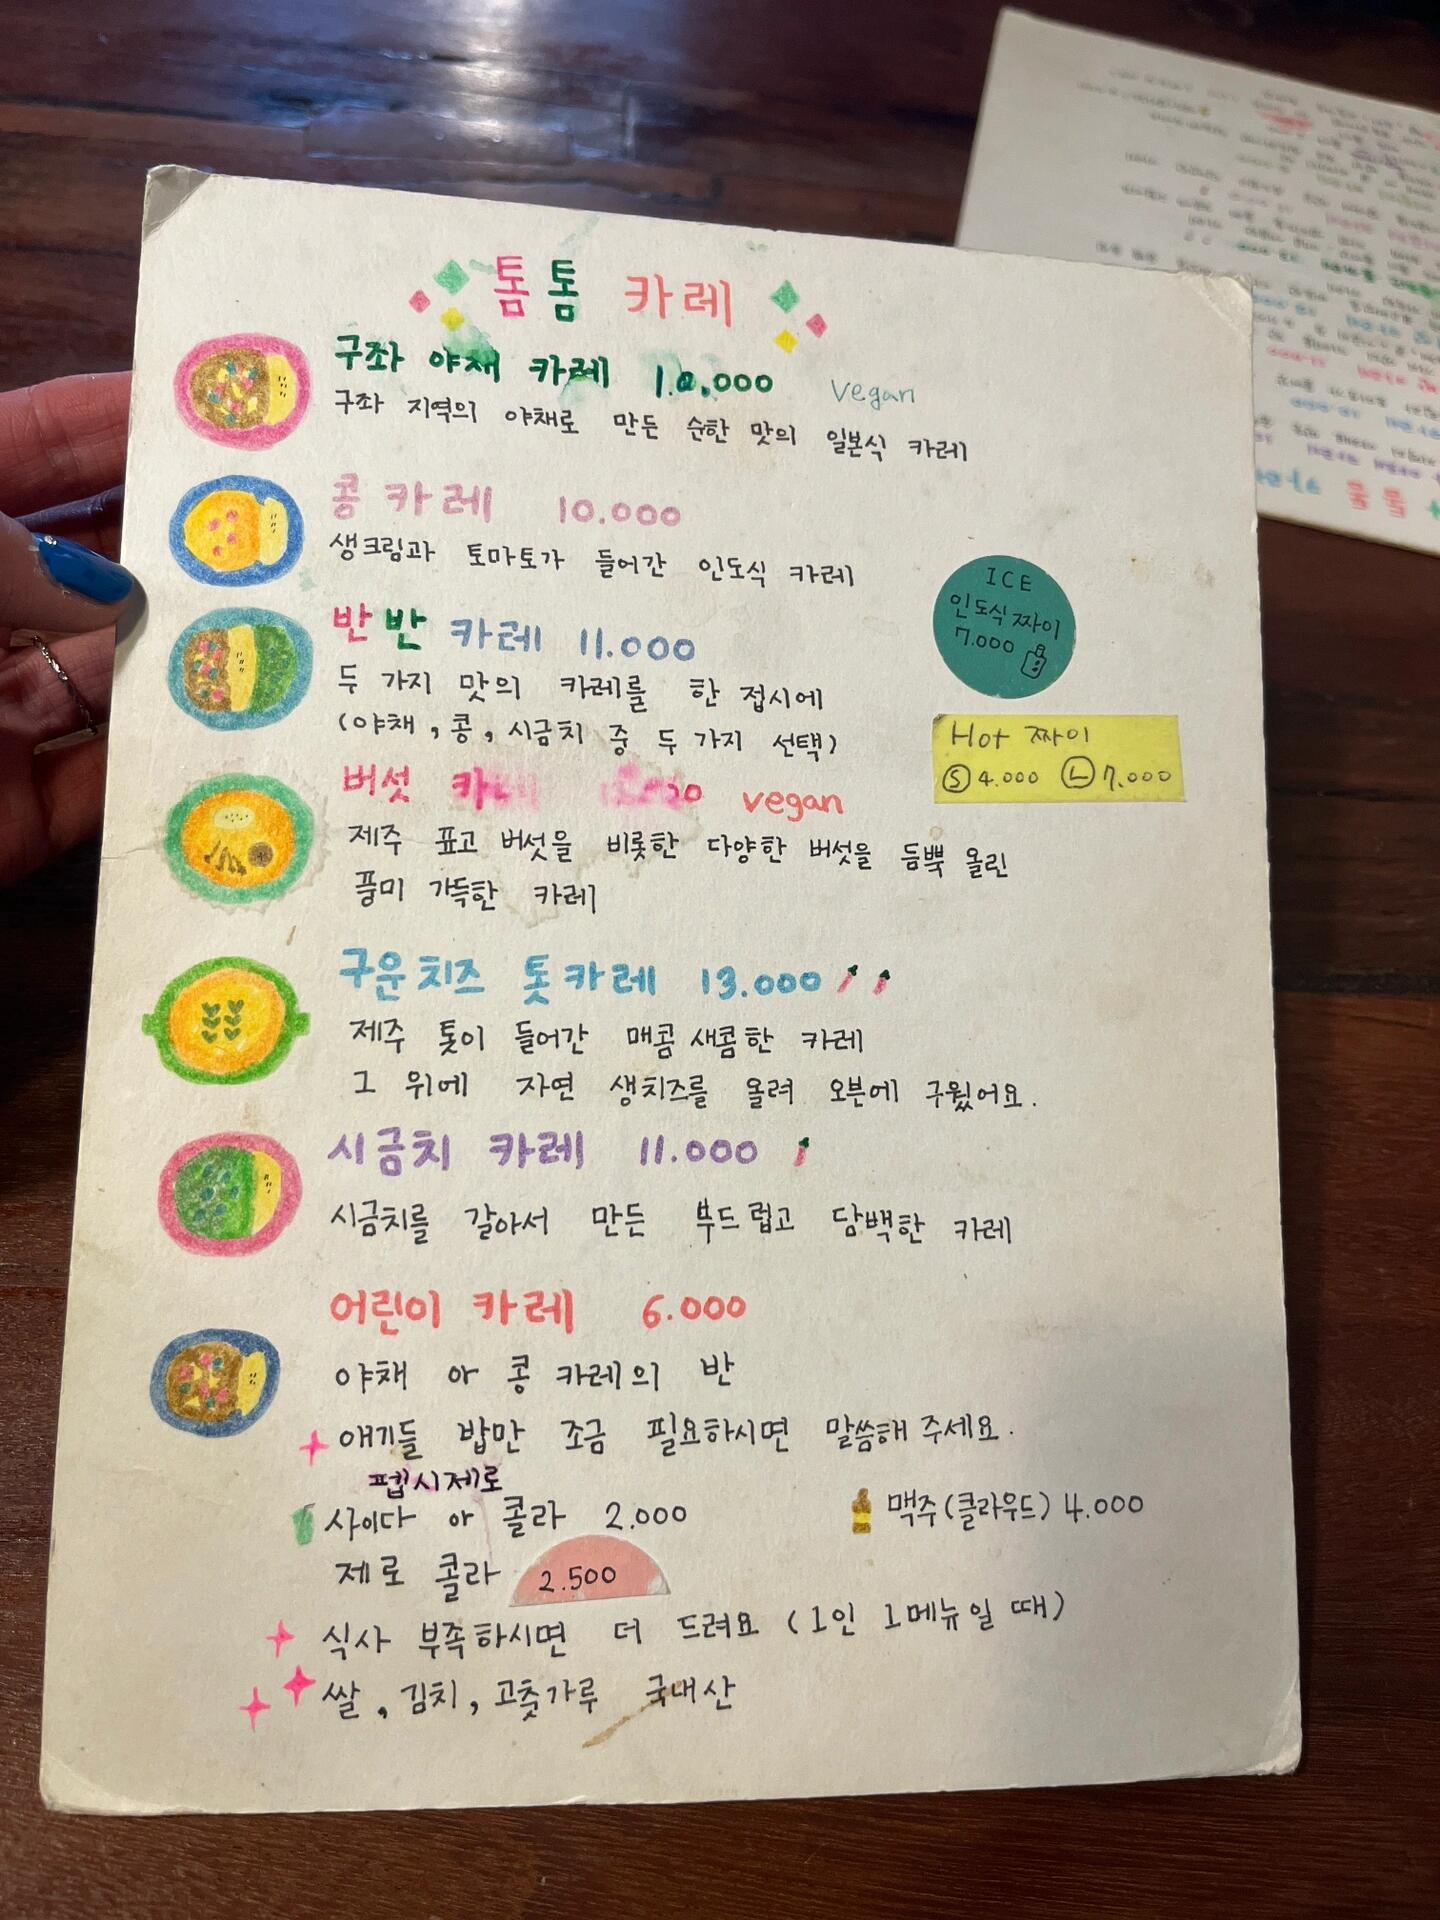 톰톰 카레
구좌 야채 카레 10.000 vegan
구좌 지역의 야채로 만든 순한 맛의 일본식 카레
콩 카레 10.000
생크림과 토마토가 들어간 인도식 카레
반반 카레 11.000
두 가지 맛의 카레를 한 접시에
(야채, 콩, 시금치 중 두 가지 선택)
ICE
인도식 짜이
7.000
Hot 짜이
Ⓢ 4.000 Ⓛ 7.000
버섯 vegan
제주 표고 버섯을 비롯한 다양한 버섯을 듬뿍 올린
풍미 가득한 카레
구운치즈 톳카레 13.000
제주 톳이 들어간 매콤새콤한 카레
그 위에 자연 생치즈를 올려 오븐에 구웠어요.
시금치 카레 11.000
시금치를 갈아서 만든 부드럽고 담백한 카레
어린이 카레 6.000
야채 or 콩 카레의 반
얘기들 밥만 조금 필요하시면 말씀해 주세요.
펩시제로
사이다 or 콜라 2.000
맥주(클라우드) 4.000
제로 콜라 2.500
식사 부족하시면 더 드려요 (1인 1메뉴일 때)
쌀, 김치, 고춧가루 국내산